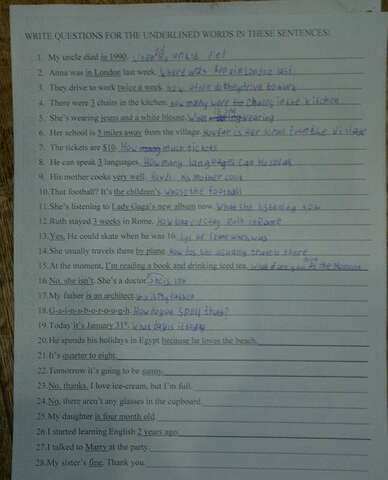 WRITE QUESTIONS FOR THE UNDERLINED WORDS IN THESE SENTENCES:
1. My uncle died in 1990.
2. Anna was in London last week. Where was
3. They drive to work twice a week. they drive to work
4. There were 3 chairs in the kitchen. How many were the chairs in the kitchen
5. She's wearing jeans and a white blouse. What wearing
6. Her school is 5 miles away from the village. How far is Her school from the village
7. The tickets are $10. How much tickets
8. He can speak 3 languages. How many languages can He speak
9. His mother cooks very well. his mother cook
10. That football? It's the children's. the football
11. She's listening to Lady Gaga's new album now. What she listening now
12. Ruth stayed 3 weeks in Rome. How long Ruth
13. Yes, He could skate when he was 16.
14. She usually travels there by plane. How usually travels there
15. At the moment, I'm reading a book and drinking iced tea. What you at the moment
16. No, she isn't. She's a doctor. She is
17. My father is an architect.
18. G-a-i-n-s-b-o-r-o-u-g-h. How you spell that?
19. Today it's January 31st. What today
20. He spends his holidays in Egypt because he loves the beach.
21. It's quarter to eight.
22. Tomorrow it's going to be sunny.
23. No, thanks. I love ice-cream, but I'm full.
24. No, there aren't any glasses in the cupboard.
25. My daughter is four month old.
26. I started learning English 2 years ago.
27. I talked to Marry at the party.
28. My sister's fine. Thank you.